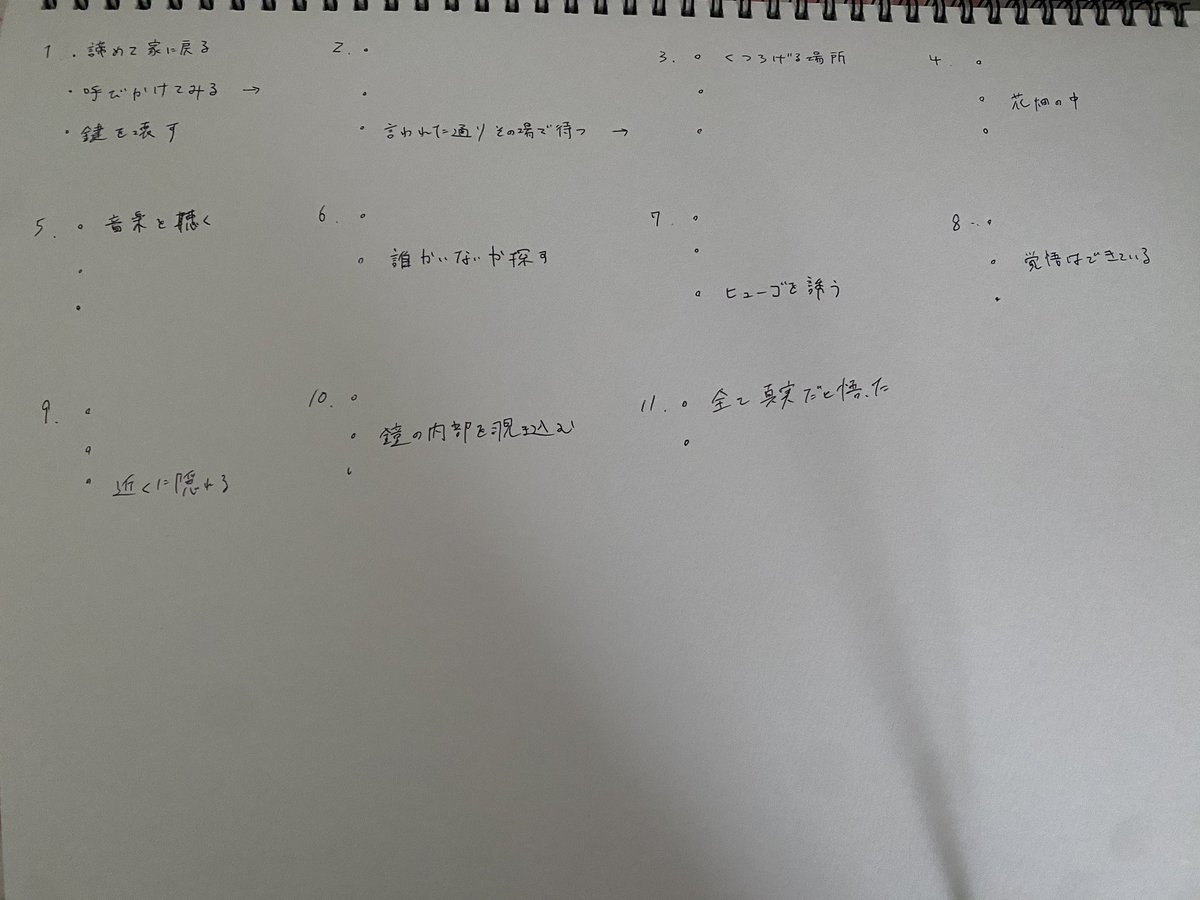 1. ・諦めて家に戻る
・呼びかけてみる →
・鍵を壊す
2. 。
。
。 言われた通りその場で待つ →
3. 。 くつろげる場所
。
。
4. 。
。 花畑の中
。
5. 。 音楽を聴く
。
。
6. 。
。 誰かいないか探す
7. 。
。
。 ヒューゴを誘う
8. 。
。 覚悟はできている
。
9. 。
。
。 近くに隠れる
10. 。
。 鏡の内部を覗き込む
。
11. 。 全て真実だと悟った
。